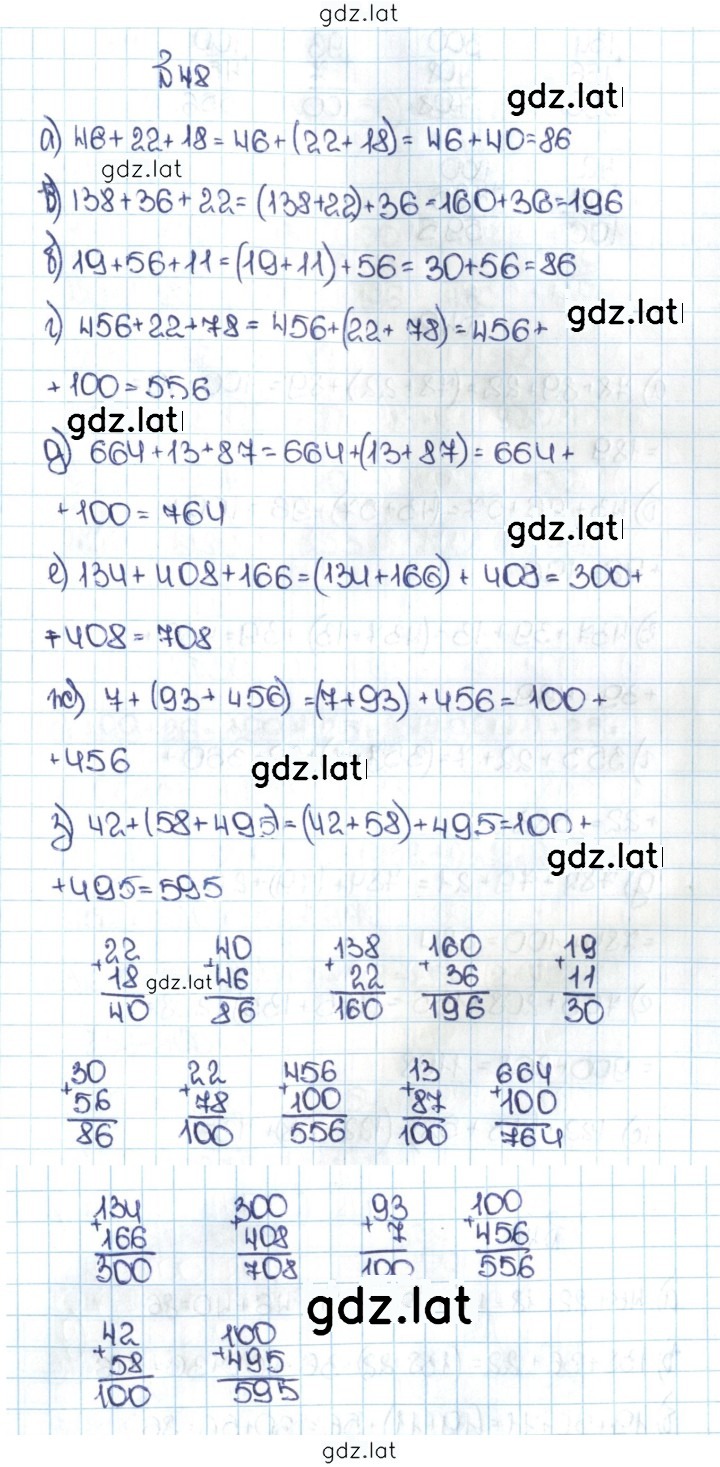 gdz.lat
№ 48
gdz.lat
а) 46+22+18=46+(22+18)=46+40=86
gdz.lat
в) 138+36+22=(138+22)+36=160+36=196
б) 19+56+11=(19+11)+56=30+56=86
г) 456+22+78=456+(22+78)=456+
gdz.lat
+100=556
gdz.lat
д) 664+13+87=664+(13+87)=664+
+100=764
gdz.lat
е) 134+408+166=(134+166)+408=300+
+408=708
ж) 7+(93+456)=(7+93)+456=100+
+456
gdz.lat
з) 42+(58+495)=(42+58)+495=100+
gdz.lat
+495=595
22 40 138 160 19
+18 +46 +22 +36 +11
gdz.lat
40 86 160 196 30
30 22 456 13 664
+56 +78 +100 +87 +100
86 100 556 100 764
134 300 93 100
+166 +408 +7 +456
300 708 100 556
gdz.lat
42 100
+58 +495
100 595
gdz.lat